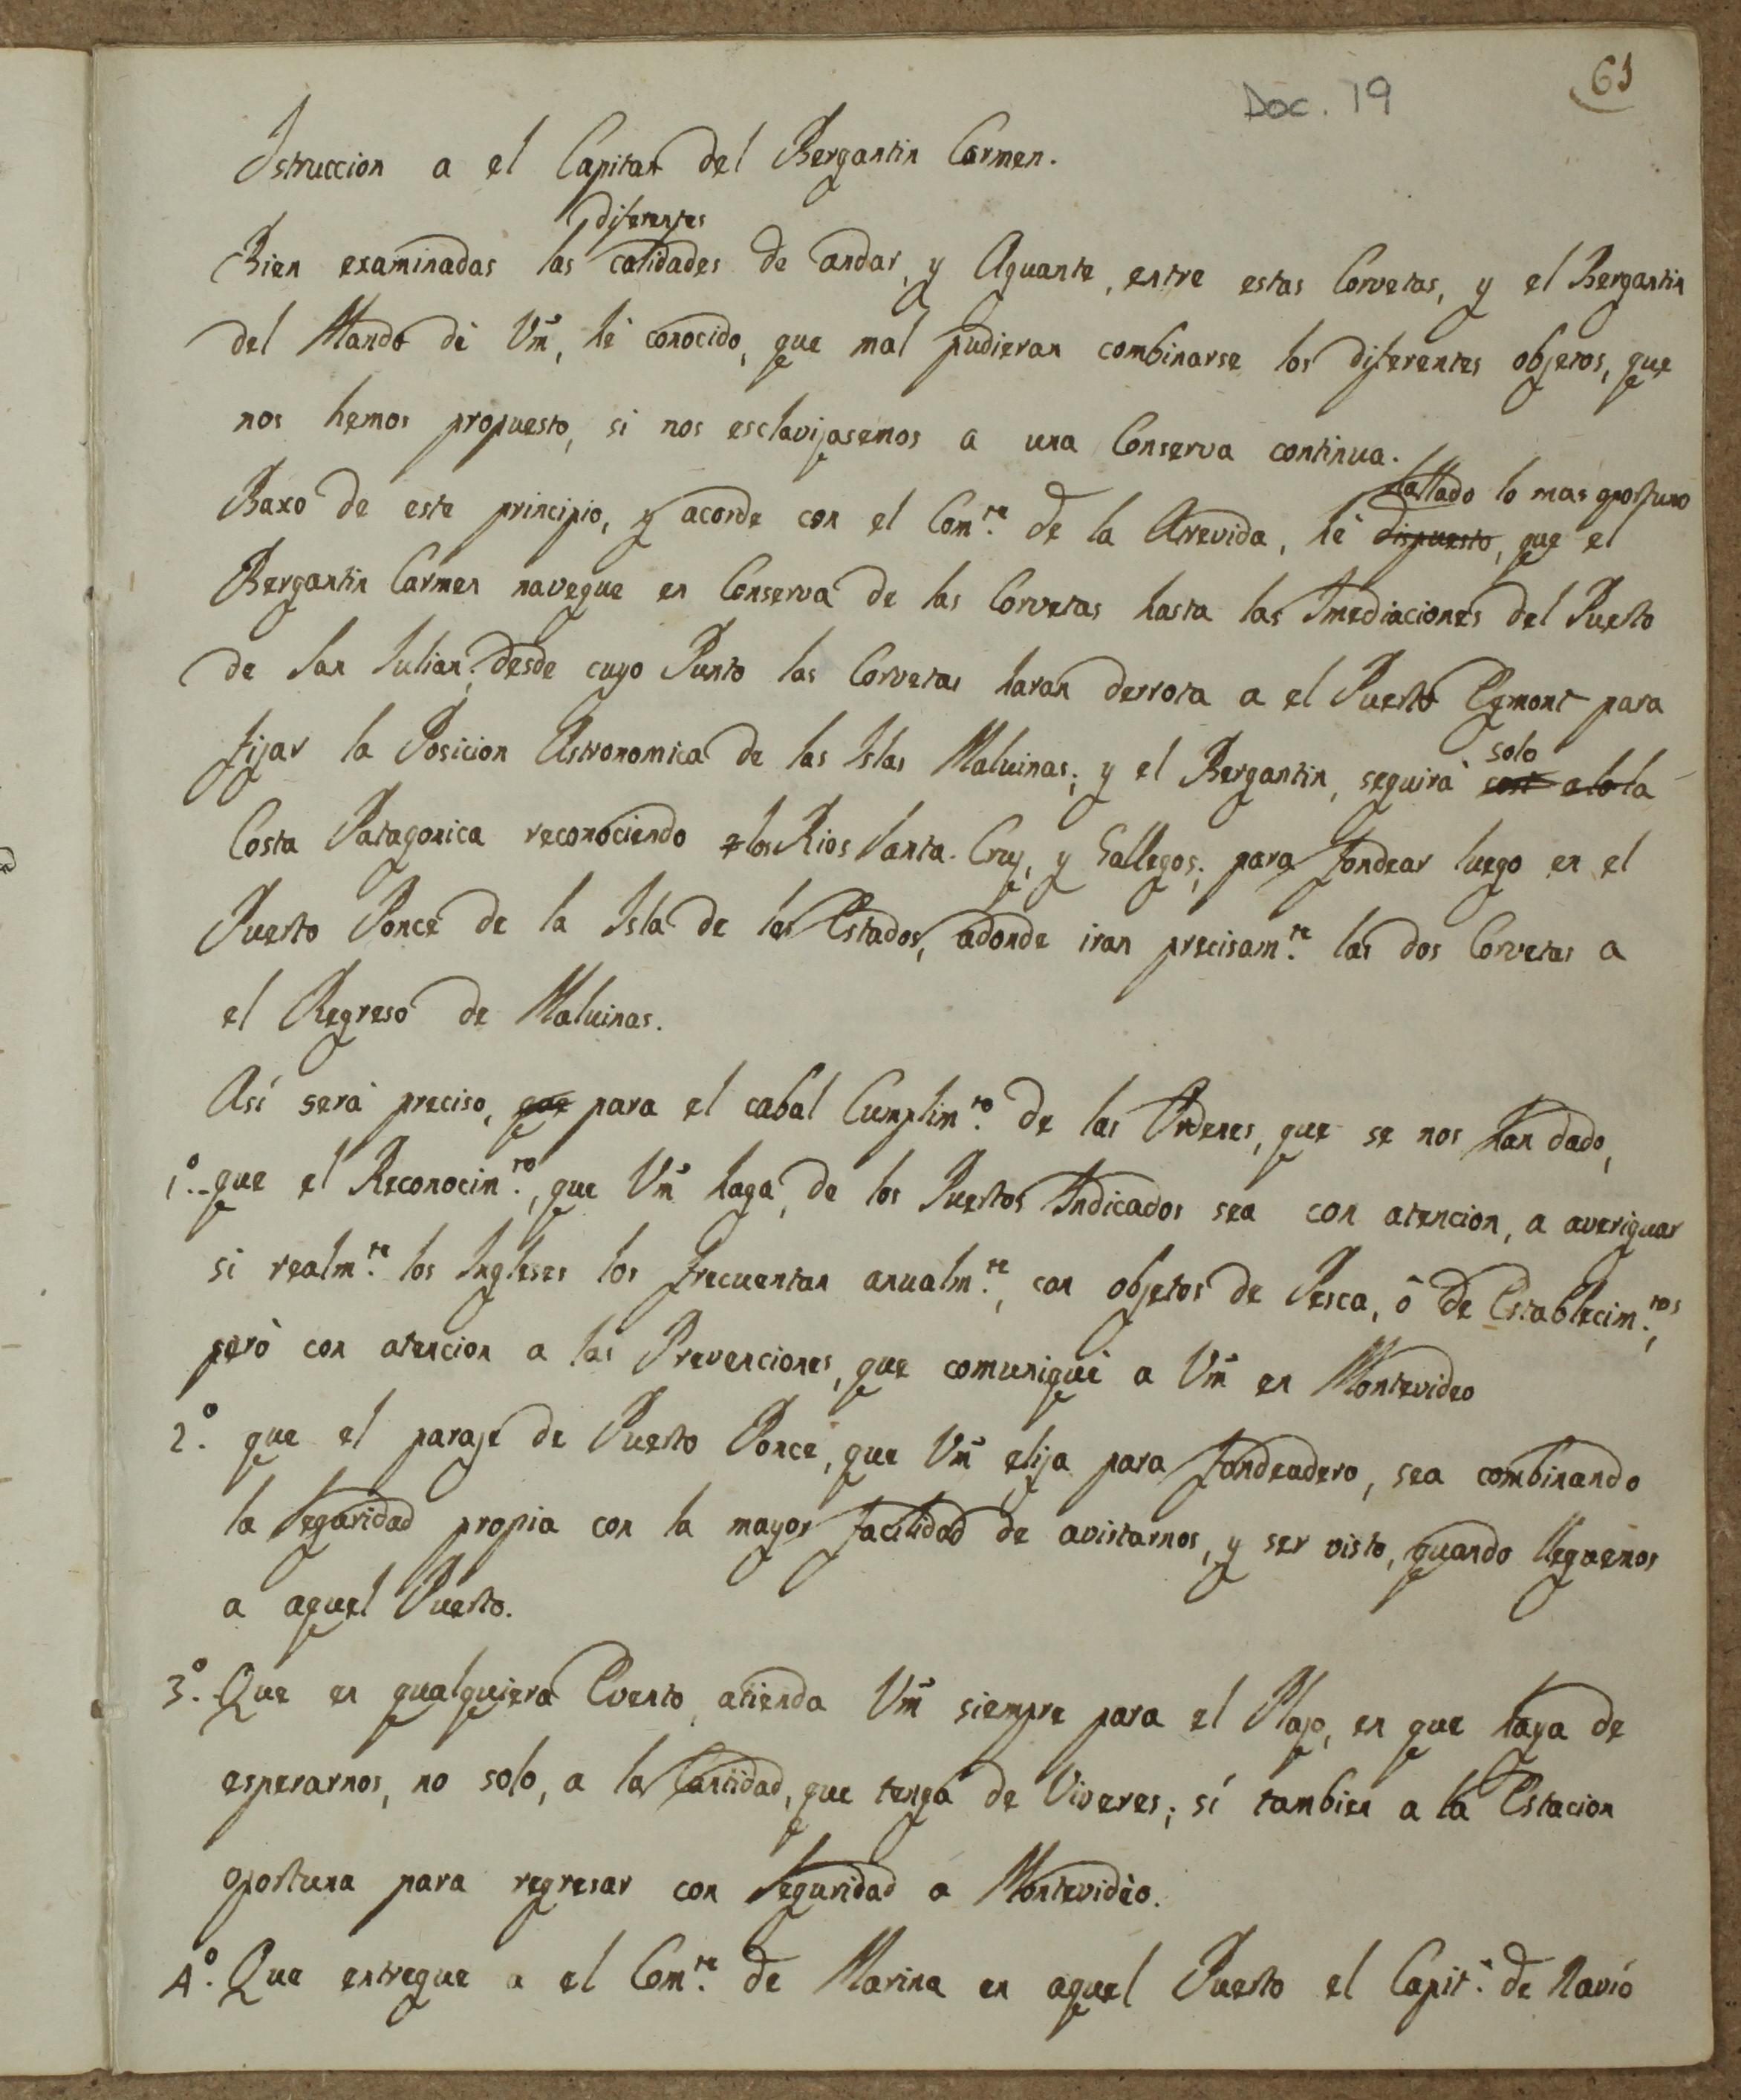 Doc. 19
61
Istruccion a el Capitan del Bergantin Carmen.
diferentes
Bien examinadas las calidades de andar, y Aguante, entre estas Corvetas, y el Bergantin
del Mando de Vm̃, hè conocido, que mal pudieran combinarse los diferentes objetos, que
nos hemos propuesto, si nos esclavijasemos a una Conserva continua.
hallado lo mas oportuno
Baxo de este principio, y acorde con el Com.te de la Atrevida, hè dispuesto, que el
Bergantin Carmen navegue en Conserva de las Corvetas hasta las Imediaciones del Puerto
de San Julian; desde cuyo Punto las Corvetas haran derrota a el Puerto Egmont para
solo
fijar la Posicion Astronomica de las Islas Maluinas; y el Bergantin, seguirà la
Costa Patagonica reconociendo los Rios Santa Cruz, y Gallegos; para fondear luego en el
Puerto Ponce de la Isla de los Estados, adonde iran precisam.te las dos Corvetas a
el Regreso de Maluinas.
Así serà preciso, que para el cabal Cumplim.to de las Ordenes, que se nos han dado,
1.º que el Reconocim.to, que Vm̃ haga, de los Puertos Indicados sea con atencion, a averiguar
si realm.te los Ingleses los frecuentan anualm.te, con objetos de Pesca, ò de Establecim.tos,
però con atencion a las Prevenciones, que comuniquè a Vm̃ en Montevideo
2.º que el paraje de Puerto Ponce, que Vm̃ elija para fondeadero, sea combinando
la Seguridad propia con la mayor facilidad de avistarnos, y ser visto, quando lleguemos
a aquel Puerto.
3.º Que en qualquiera Evento, atienda Vm̃ siempre para el Plazo, en que haya de
esperarnos, no solo, a la Cantidad, que tenga de Viveres; sí tambien a la Estacion
oportuna para regresar con Seguridad a Montevidèo.
4.º Que entregue a el Com.te de Marina en aquel Puerto el Capit.n de Navío